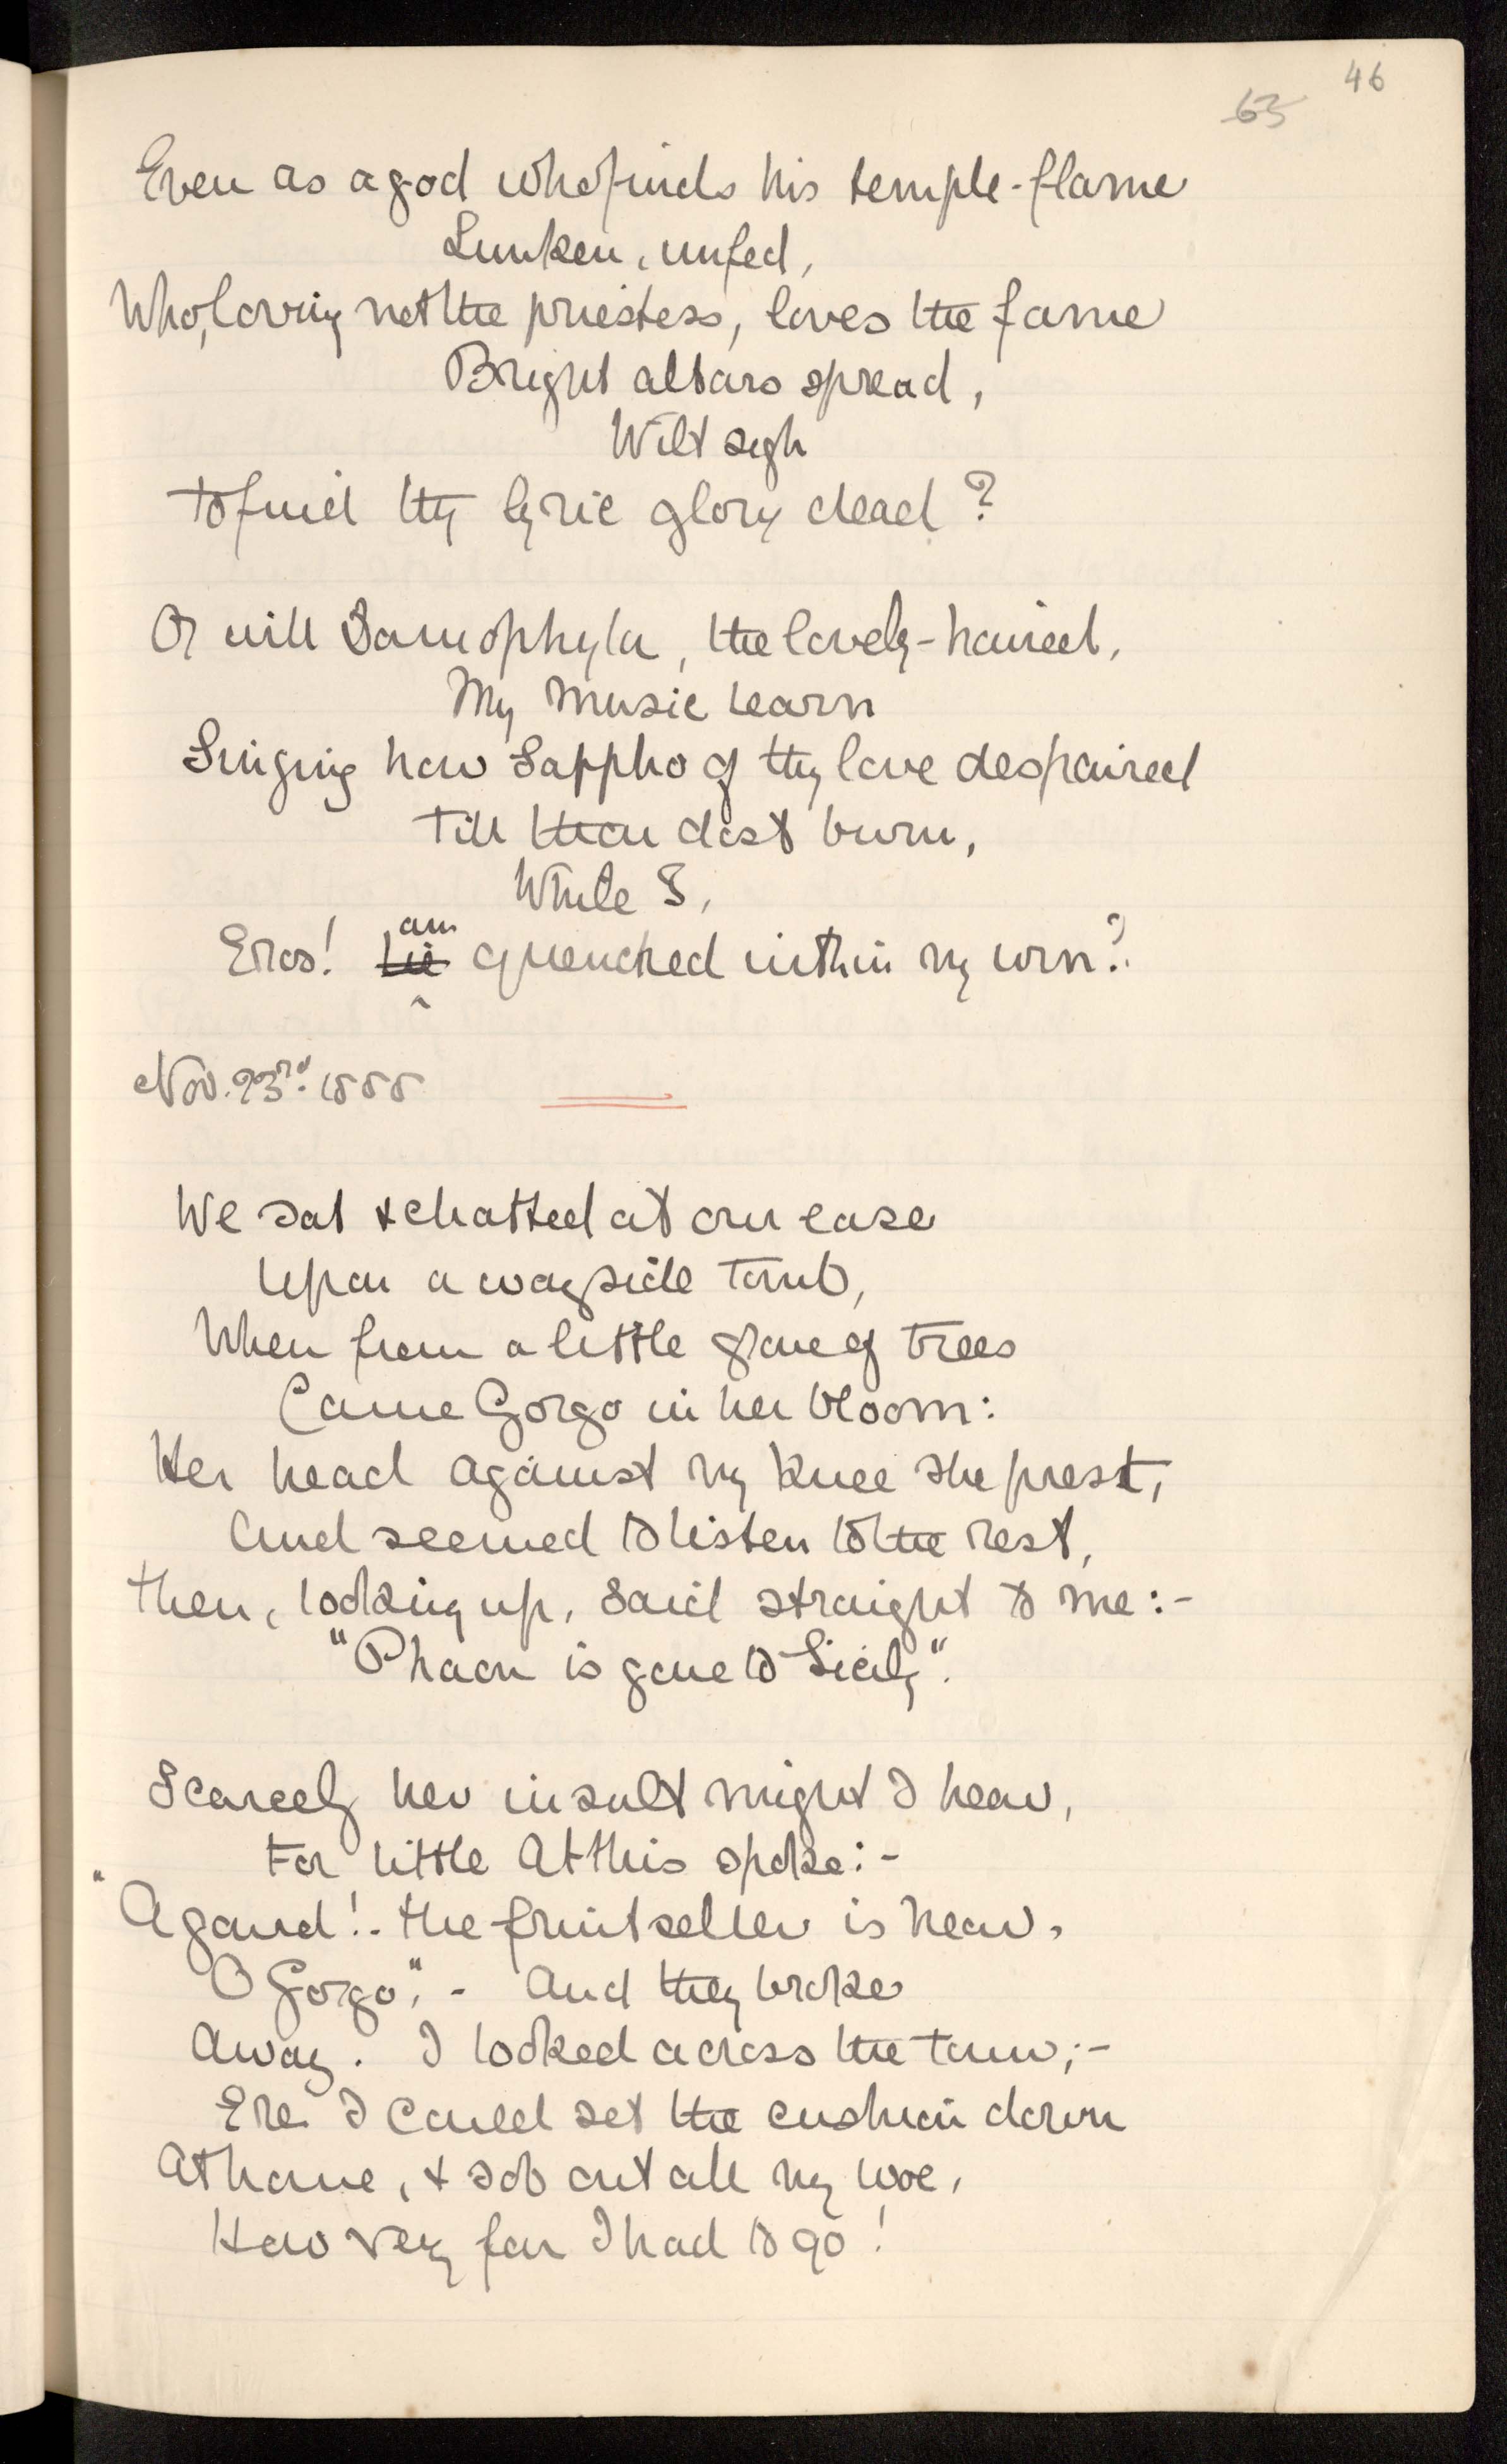 46
63
Even as a god who finds his temple-flame
Sunken, unfed,
Who, loving not the priestess, loves the fame
Bright altars spread,
Wilt sigh
To find thy lyric glory dead?
Or will Damophyla, the lovely-haired,
My music learn
Singing how Sappho of thy love despaired
Till thou dost burn,
While I,
am
Eros! Lie quenched within my urn?
Nov. 23rd. 1888
We sat & chatted at our ease
Upon a wayside tomb,
When from a little grove of trees
Came Gorgo in her bloom:
Her head against my knee she prest,
And seemed to listen to the rest,
Then, looking up, said straight to me:-
"Phaon is gone to Sicily".
Scarcely her insult might I hear,
For little Atthis spoke:-
"A gaud!- the fruitseller is near,
O Gorgo", - And they broke
Away. I looked across the town;-
Ere I could set the cushion down
At home, & sob out all my woe,
How very far I had to go!